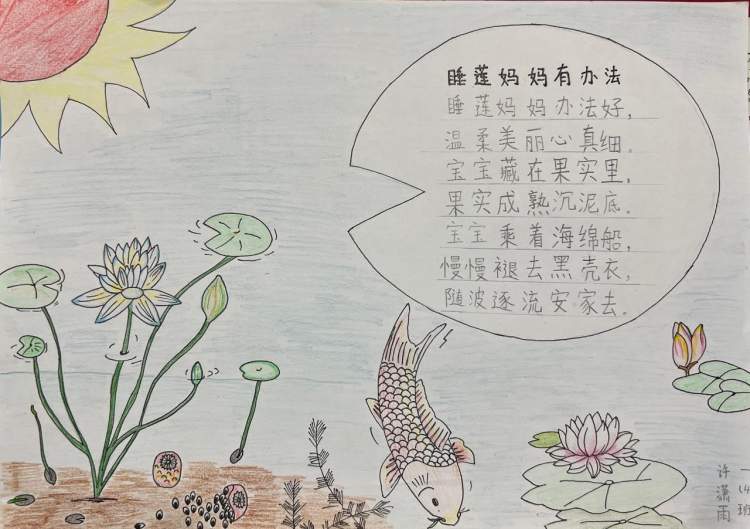 睡莲妈妈有办法
睡莲妈妈办法好，
温柔美丽心真细。
宝宝藏在果实里，
果实成熟沉泥底。
宝宝乘着海绵船，
慢慢褪去黑壳衣，
随波逐流安家去。
一(4)班
许潇雨